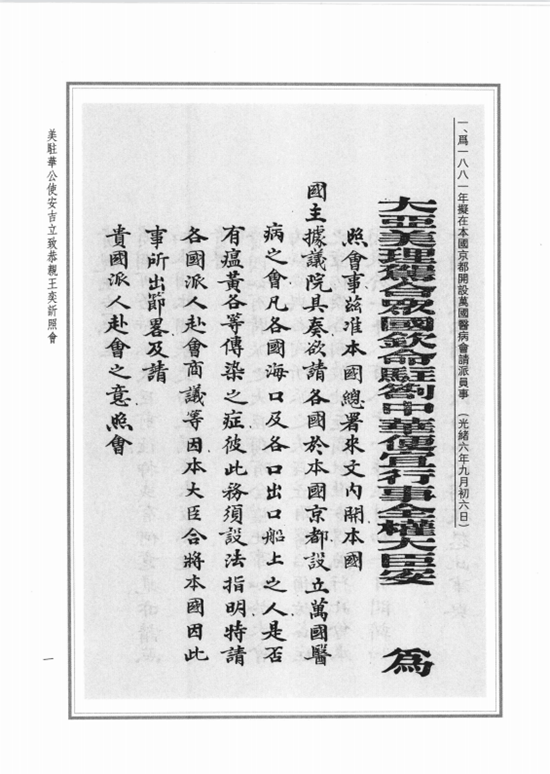 一、爲一八八一年擬在本國京都開設萬國醫病會請派員事 （光緒六年九月初六日）
大亞美理駕合衆國欽命駐劄中華便宜行事全權大臣安 爲
照會事茲准本國總署來文內開本國
國主據議院具奏欲請各國於本國京都設立萬國醫
病之會凡各國海口及各口出口船上之人是否
有瘟黃各等傳染之症彼此務須設法指明特請
各國派人赴會商議等因本大臣合將本國因此
事所出節畧及請
貴國派人赴會之意照會
美駐華公使安吉立致恭親王奕訢照會
一